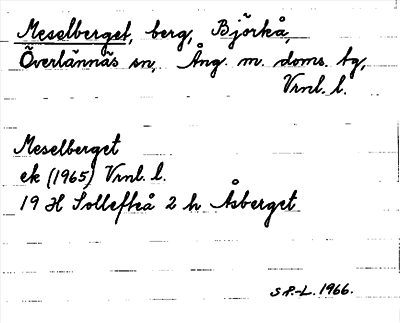 Meselberget, berg, Björkå,
Överlännäs sn, Ång. m. doms. tg,
Vrnl. l.
Meselberget
ek (1965) Vrnl. l.
19 H Sollefteå 2 h Åsberget
S P.-L. 1966.